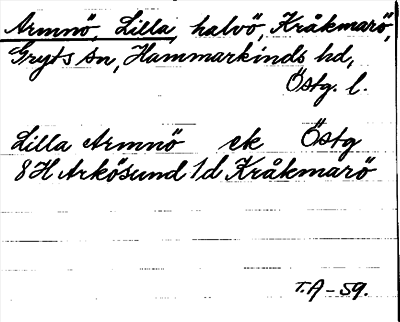 Armnö, Lilla, halvö, Kråkmarö,
Gryts sn, Hammarkinds hd,
Östg. l.
Lilla Armnö ek Östg
8H Arkösund 1d Kråkmarö
T.A-59.